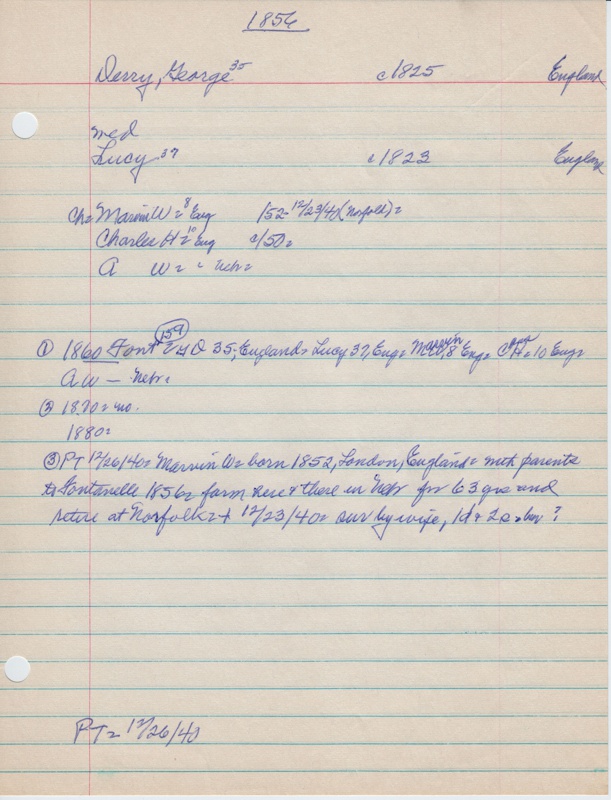 1856
Derry, George 35 c1825 England
med
Lucy 37 c1823 England
Ch= Marvin W= 8 Eng 152-12/23/40 (Norfolk)=
Charles H= 10 Eng c/50=
A W= " Nebr=
① 1860 Font 159 35; England= Lucy 37, Eng= Marvin W, 8 Eng= H= 10 Eng=
A W — Nebr=
② 1870= no.
1880=
③ PT 12/26/40= Marvin W= born 1852, London, England= with parents
to Fontanelle 1856= farm here & there in Nebr for 63 yrs and
retire at Norfolk= + 12/23/40= sur by wife, 1d & 2s= bur ?
PT= 12/26/40